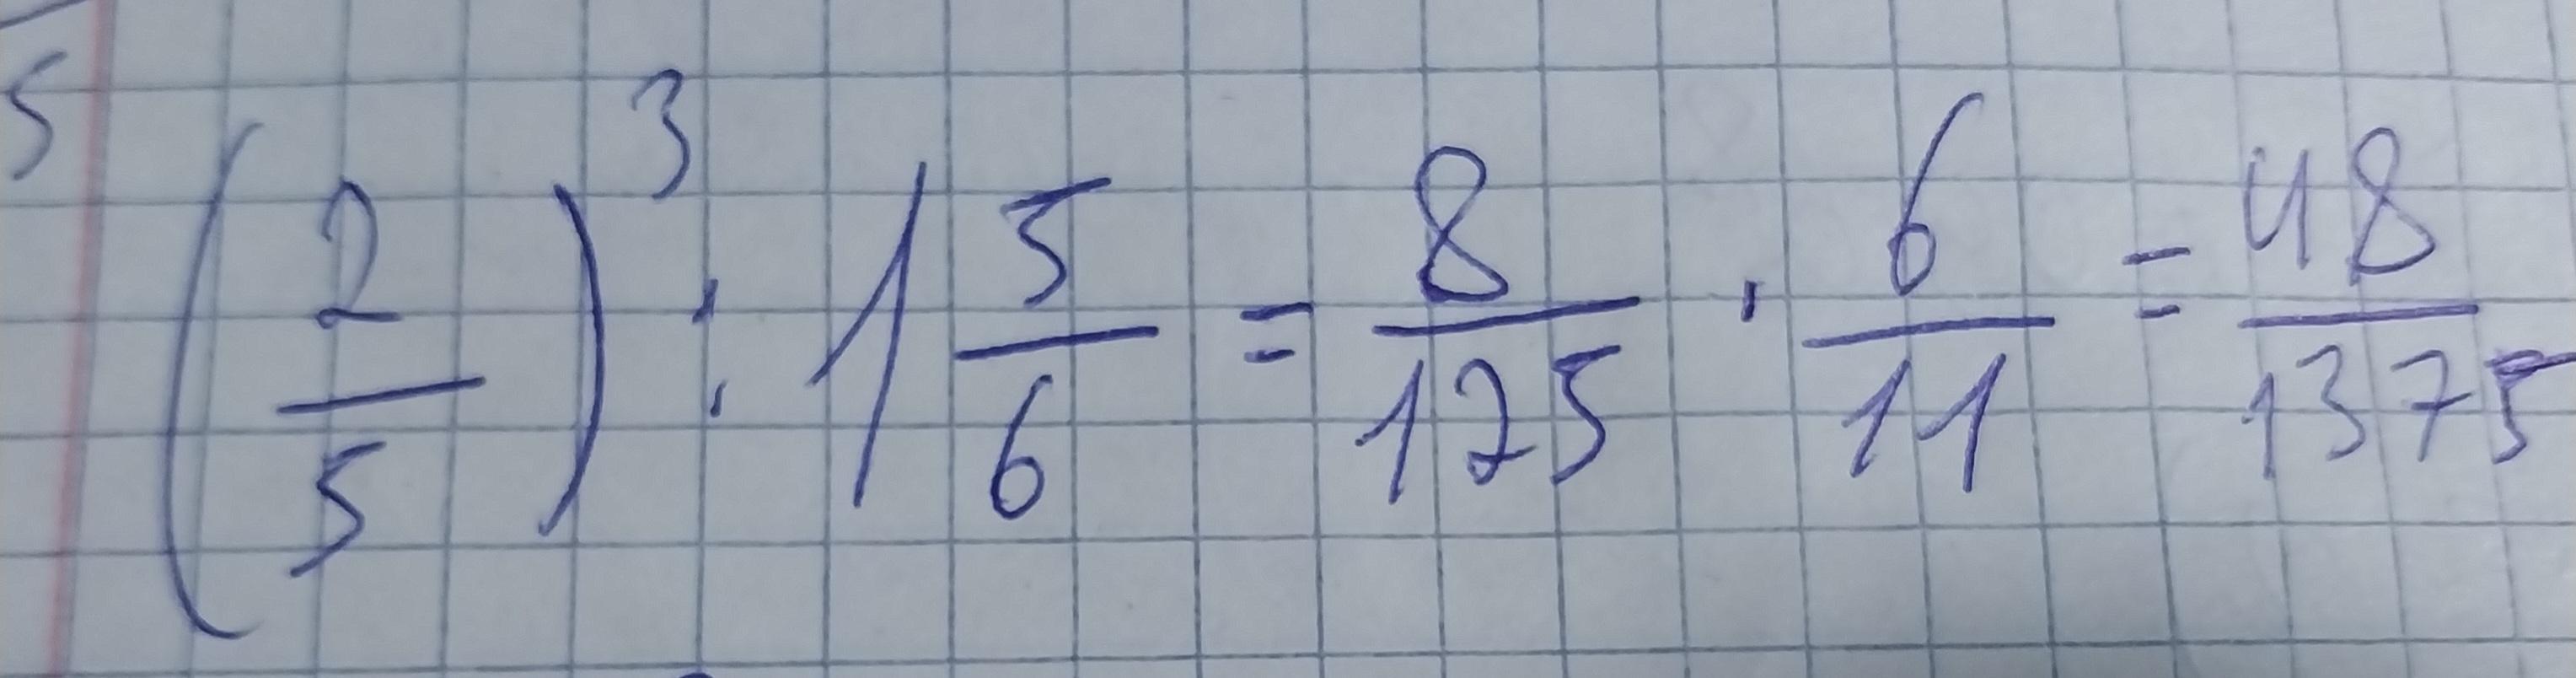 5
(2/5)³ : 1 5/6 = 8/125 · 6/11 = 48/1375